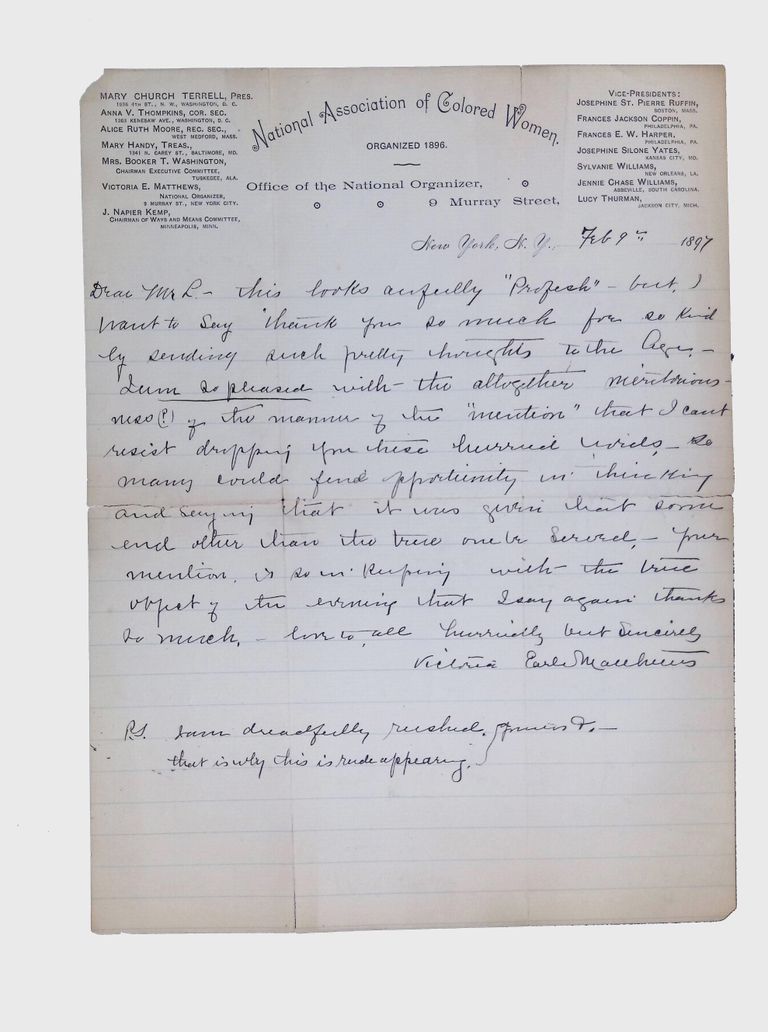 MARY CHURCH TERRELL, PRES.
1936 4TH ST., N. W., WASHINGTON, D. C.
ANNA V. THOMPKINS, COR. SEC.
KENESAW AVE., WASHINGTON, D. C.
ALICE RUTH MOORE, REC. SEC.,
WEST MEDFORD, MASS.
MARY HANDY, TREAS.,
1341 N. CAREY ST., BALTIMORE, MD.
MRS. BOOKER T. WASHINGTON,
CHAIRMAN EXECUTIVE COMMITTEE,
TUSKEGEE, ALA.
VICTORIA E. MATTHEWS,
NATIONAL ORGANIZER,
9 MURRAY ST., NEW YORK CITY.
J. NAPIER KEMP,
CHAIRMAN OF WAYS AND MEANS COMMITTEE,
MINNEAPOLIS, MINN.
National Association of Colored Women.
ORGANIZED 1896.
Office of the National Organizer,
9 Murray Street,
VICE-PRESIDENTS:
JOSEPHINE ST. PIERRE RUFFIN,
BOSTON, MASS.
FRANCES JACKSON COPPIN,
PHILADELPHIA, PA.
FRANCES E. W. HARPER,
PHILADELPHIA, PA.
JOSEPHINE SILONE YATES,
KANSAS CITY, MO.
SYLVANIE WILLIAMS,
NEW ORLEANS, LA.
JENNIE CHASE WILLIAMS,
ABBEVILLE, SOUTH CAROLINA.
LUCY THURMAN,
JACKSON CITY, MICH.
New York, N. Y., Feb 9th 1897
Dear Mr L. - this looks awfully "Profesh" - but, I
want to say thank you so much for so kind
ly sending such pretty thoughts to the Age, -
I am so pleased with the altogether meritorious-
ness (?) of the manner of the "mention" that I cant
resist dropping you these hurried words, - so
many could find opportunity in thinking
and saying that it was given that some
end other than the true one be served, - your
mention, is so in keeping with the true
object of the evening that I say again thanks
so much. - love to all hurriedly but sincerely
Victoria Earle Matthews
P.S. I am dreadfully rushed,
that is why this is rude appearing.